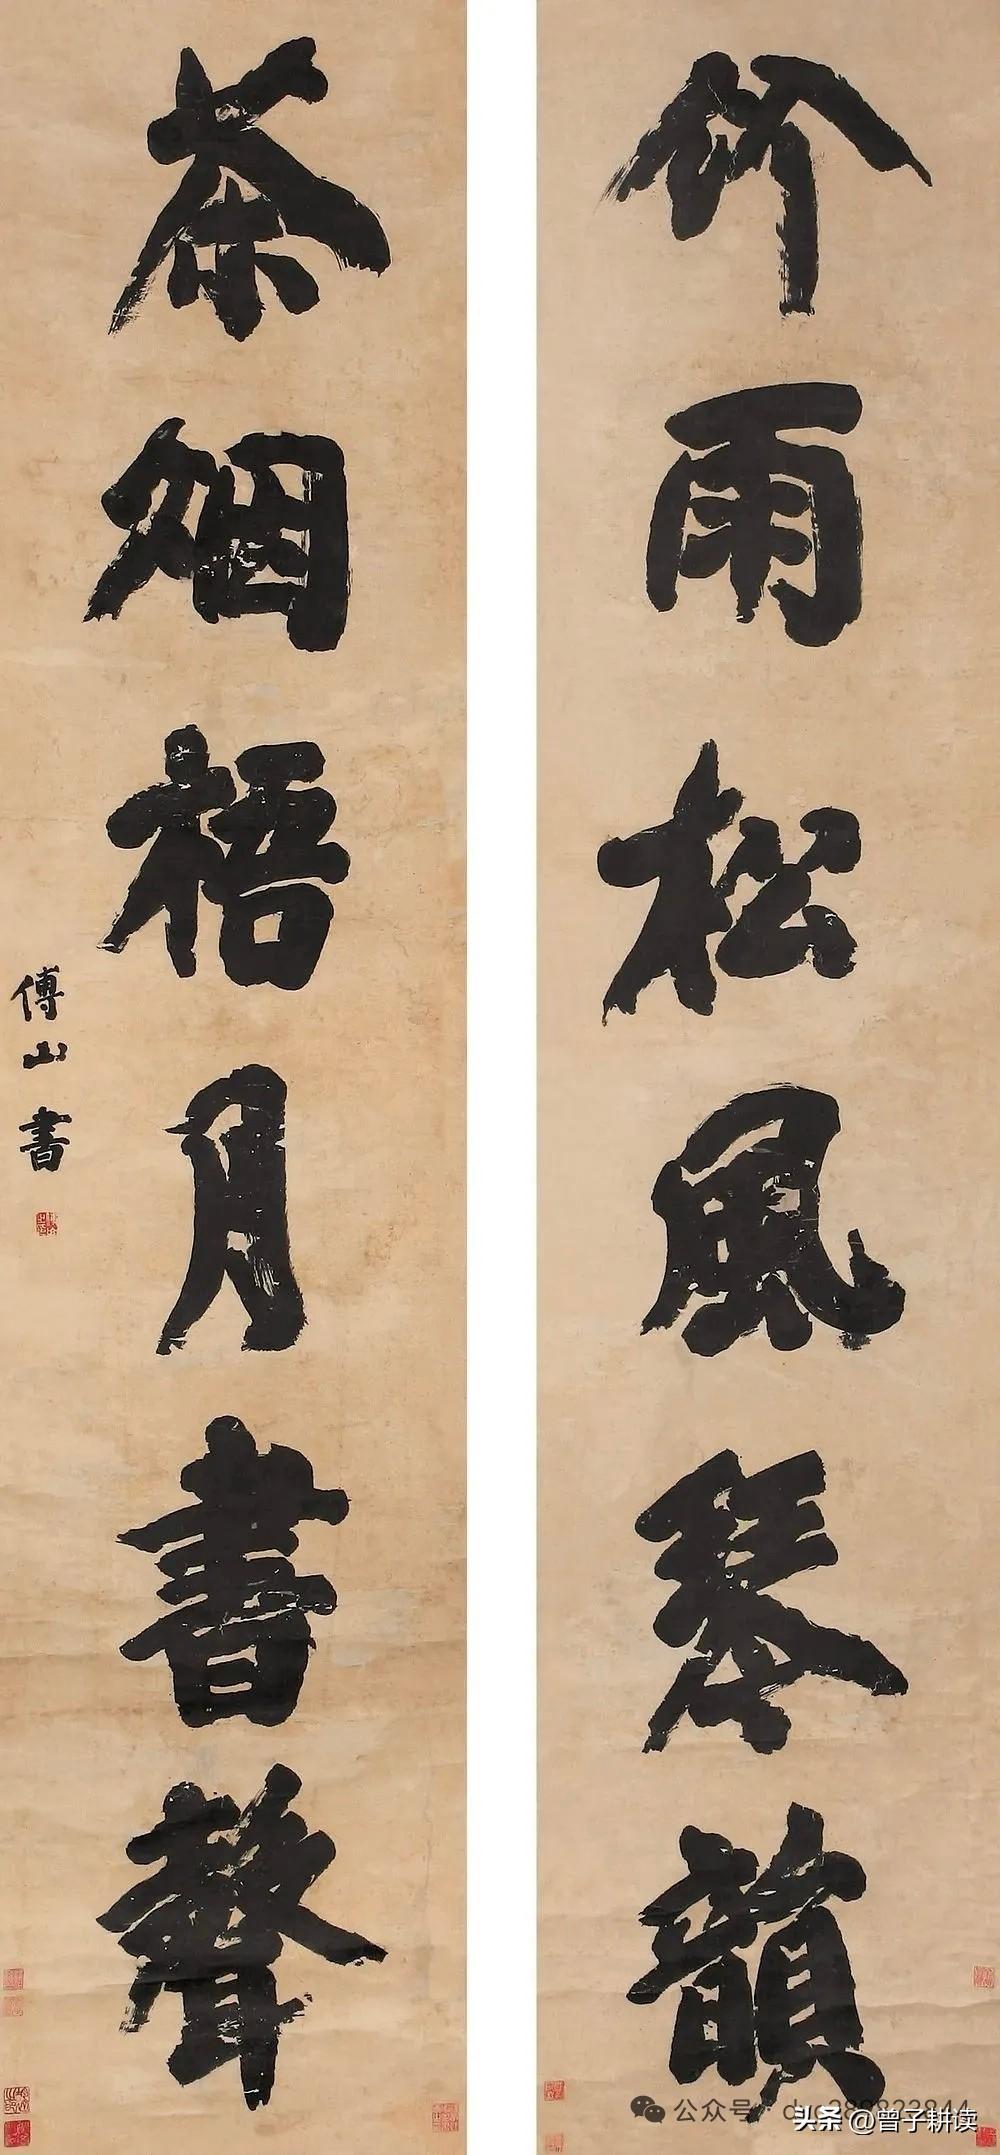 竹雨松風琴韻
茶烟梧月書聲
傅山書
头条 @曾子耕读